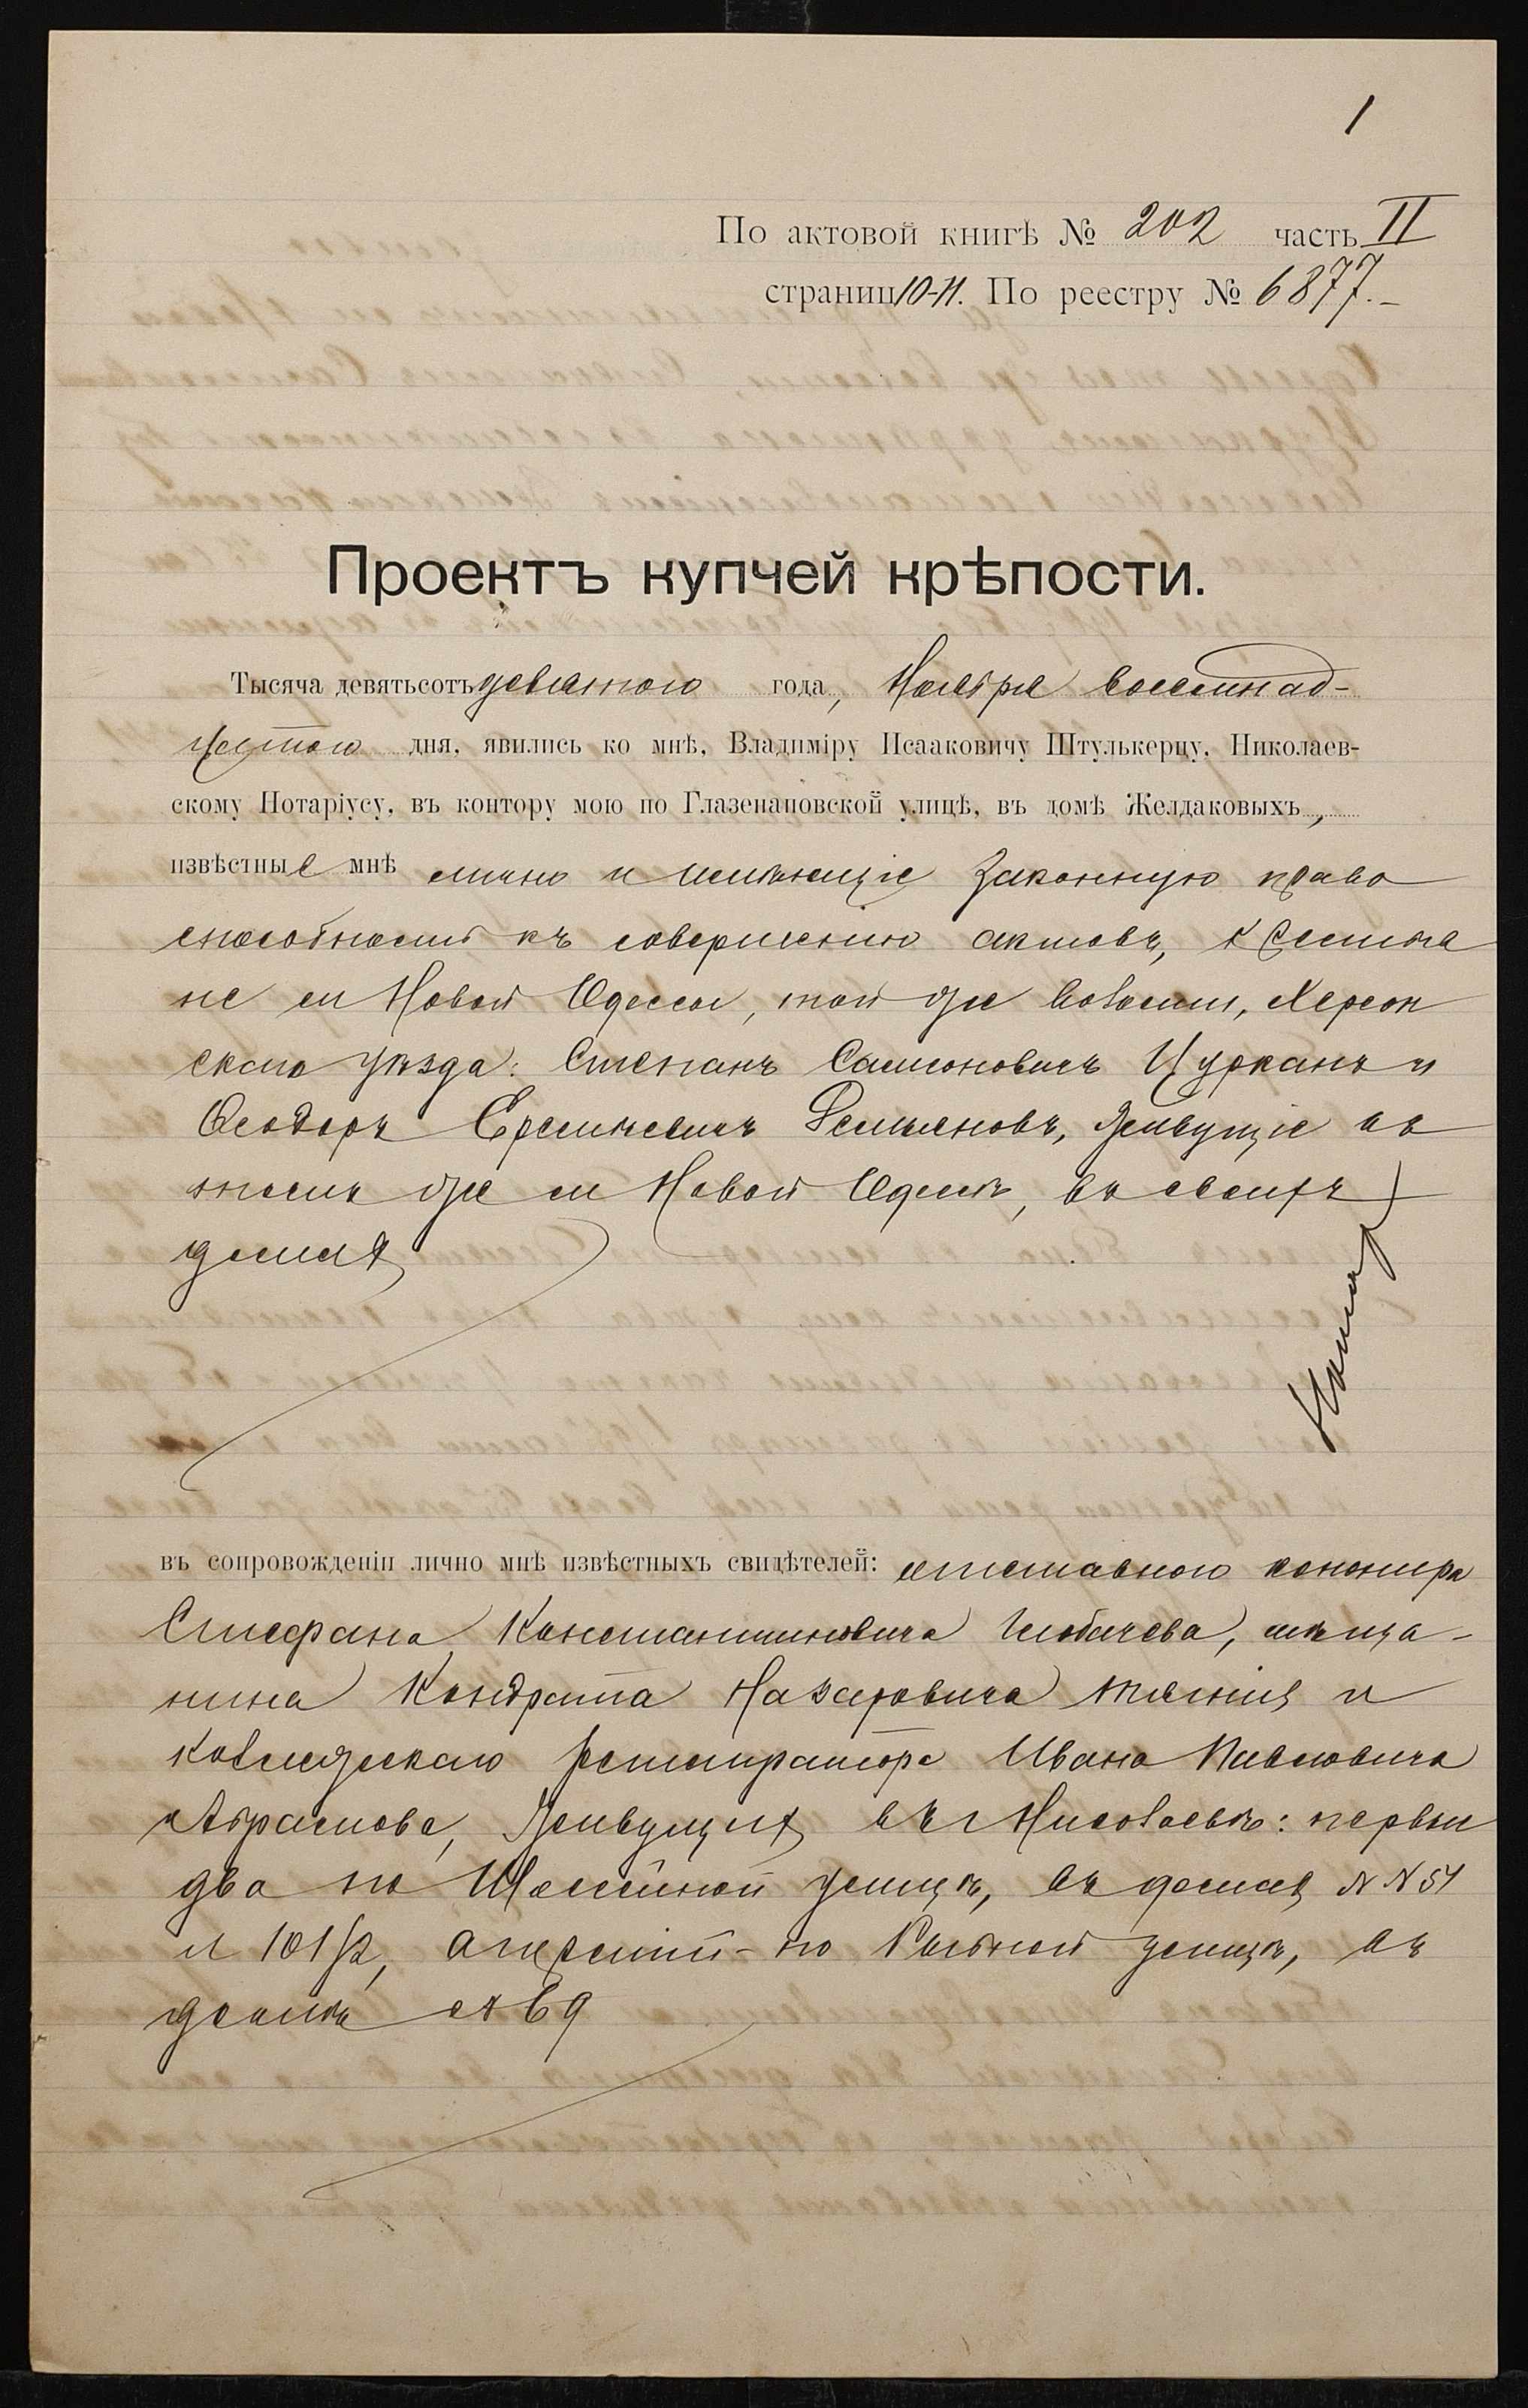 1
По актовой книгѣ № 202 часть II
страниц 10-11. По реестру № 6877.-
Проектъ купчей крѣпости.
Тысяча девятьсотъ девятого года, Ноября восемнад-
цатого дня, явились ко мнѣ, Владиміру Исааковичу Штулькерцу, Николаев-
скому Нотаріусу, въ контору мою по Глазенаповской улицѣ, въ домѣ Желдаковыхъ,
извѣстные мнѣ лично и имѣющіе законную право
способность къ совершенію актовъ, крестья
не м Новой Одессы, той же волости, Херсон
скаго уѣзда: Степанъ Самсоновичъ Цурканъ и
Ѳеодоръ Еремѣевичъ Демьяновъ, живущіе въ
томъ же м Новой Одессѣ, въ своихъ
домахъ
въ сопровожденіи лично мнѣ извѣстныхъ свидѣтелей: отставного канонира
Стефана Константиновича Глобачева, мѣща-
нина Кондрата Назаровича и
коллежскаго регистратора Ивана Павловича
Абрамова, живущихъ въ г Николаевѣ: первые
два по Шоссейной улицѣ, въ домахъ № № 51
и 101/2, а третій - по Рыбной улицѣ, въ
домѣ № 69